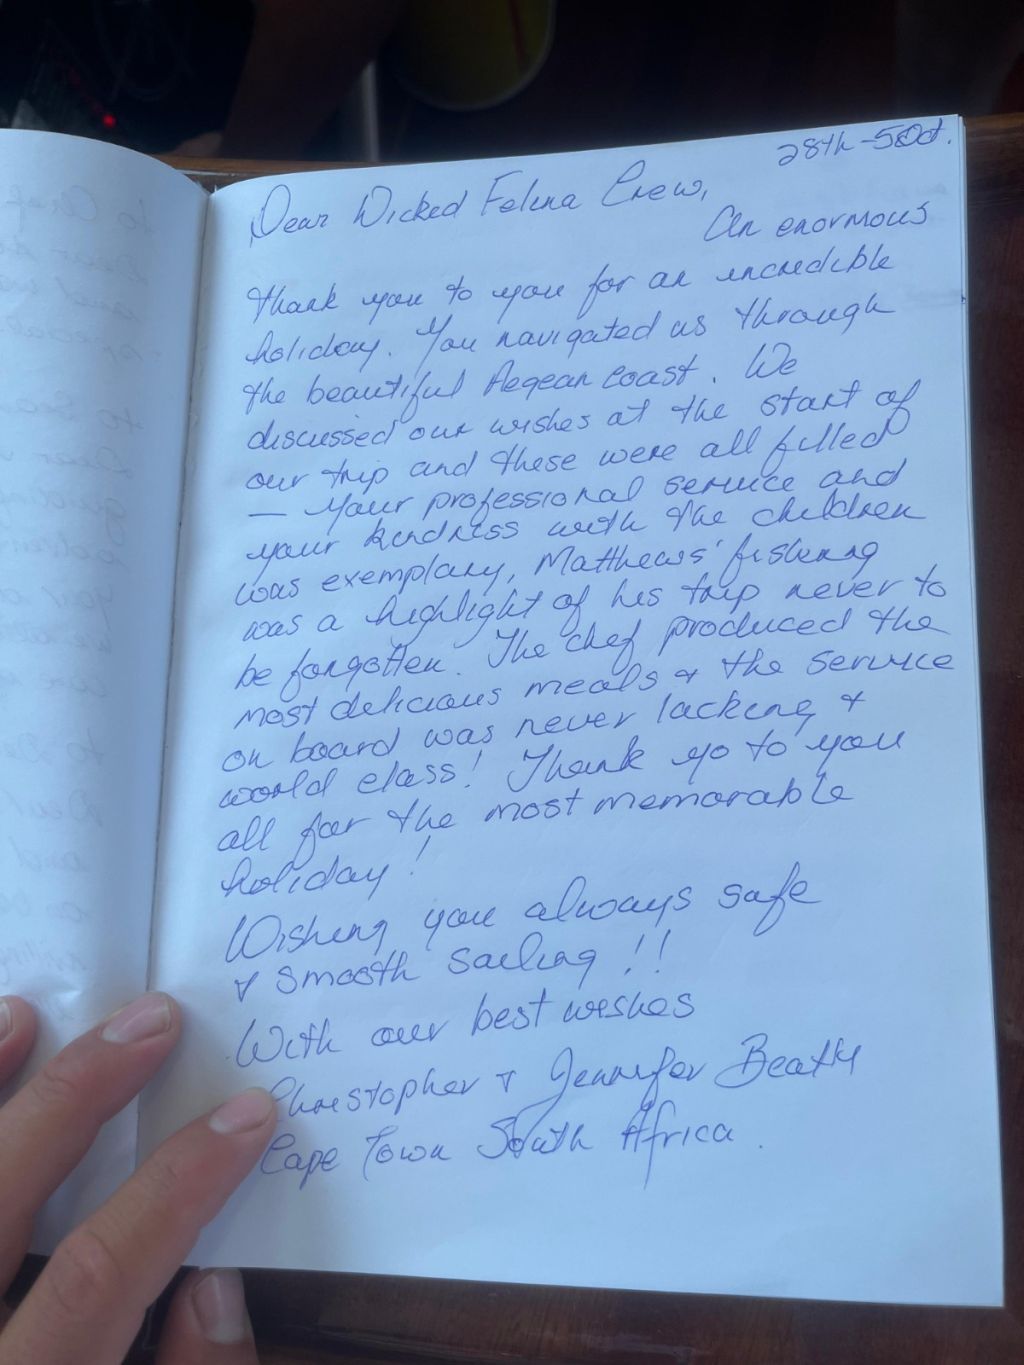 28th - 5 Oct.
Dear Wicked Felina Crew,
An enormous
thank you to you for an incredible
holiday. You navigated us through
the beautiful Aegean coast. We
discussed our wishes at the start of
our trip and these were all filled
— Your professional service and
your kindness with the children
was exemplary, Matthews' fishing
was a highlight of his trip never to
be forgotten. The chef produced the
most delicious meals + the service
on board was never lacking, +
world class! Thank yo to you
all for the most memorable
holiday!
Wishing you always safe
+ smooth sailing!!
With our best wishes
Christopher + Jennifer
Cape Town South Africa.